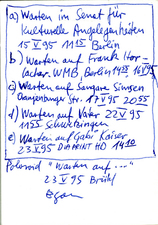 a) Warten im Senat für
kulturelle Angelegenheiten
15 V 95 11 15 Berlin
b) Warten auf Frank Hor-
lacher WMB, Berlin 14 15 16 V 95
c) Warten auf Sargare Simsen
Oranienburger Str. 17 V 95 20 55
d) Warten auf Vater 22 V 95
11 55 Schwetzingen
e) Warten auf Gabi Kaiser
23 V 95 DMPRINT HD 14 10
Polaroid "Warten auf..."
23 V 95 Brühl